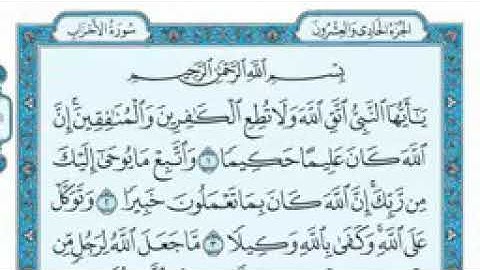 الجزء الحادي والعشرون سورة الأحزاب
بسم الله الرحمن الرحيم
يَٰٓأَيُّهَا ٱلنَّبِيُّ ٱتَّقِ ٱللَّهَ وَلَا تُطِعِ ٱلْكَٰفِرِينَ وَٱلْمُنَٰفِقِينَ إِنَّ
ٱللَّهَ كَانَ عَلِيمًا حَكِيمًا ١ وَٱتَّبِعْ مَا يُوحَىٰٓ إِلَيْكَ
مِن رَّبِّكَ إِنَّ ٱللَّهَ كَانَ بِمَا تَعْمَلُونَ خَبِيرًا ٢ وَتَوَكَّلْ
عَلَى ٱللَّهِ وَكَفَىٰ بِٱللَّهِ وَكِيلًا ٣ مَّا جَعَلَ ٱللَّهُ لِرَجُلٍ مِّن